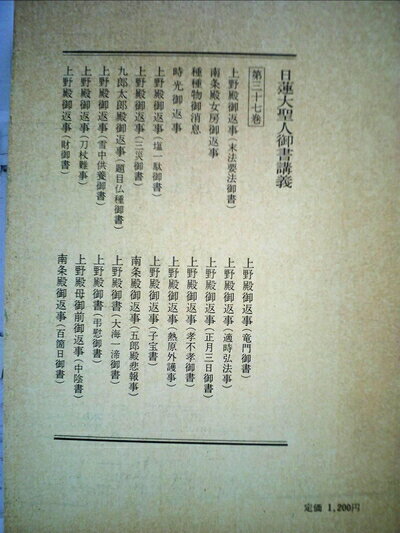 日蓮大聖人御書講義
第三十七巻
上野殿御返事(末法要法御書)
南条殿女房御返事
種種物御消息
時光御返事
上野殿御返事(塩一駄御書)
上野殿御返事(三災御書)
九郎太郎殿御返事(題目仏種御書)
上野殿御返事(雪中供養御書)
上野殿御返事(刀杖難事)
上野殿御返事(財御書)
上野殿御返事(竜門御書)
上野殿御返事(適時弘法事)
上野殿御返事(正月三日御書)
上野殿御返事(孝不孝御書)
上野殿御返事(熱原外護事)
上野殿御返事(子宝書)
南条殿御返事(五郎殿悲報事)
上野殿御書(大海一渧御書)
上野殿御書(弔慰御書)
上野殿母御前御返事(中陰書)
南条殿御返事(百箇日御書)
定価 1,200円